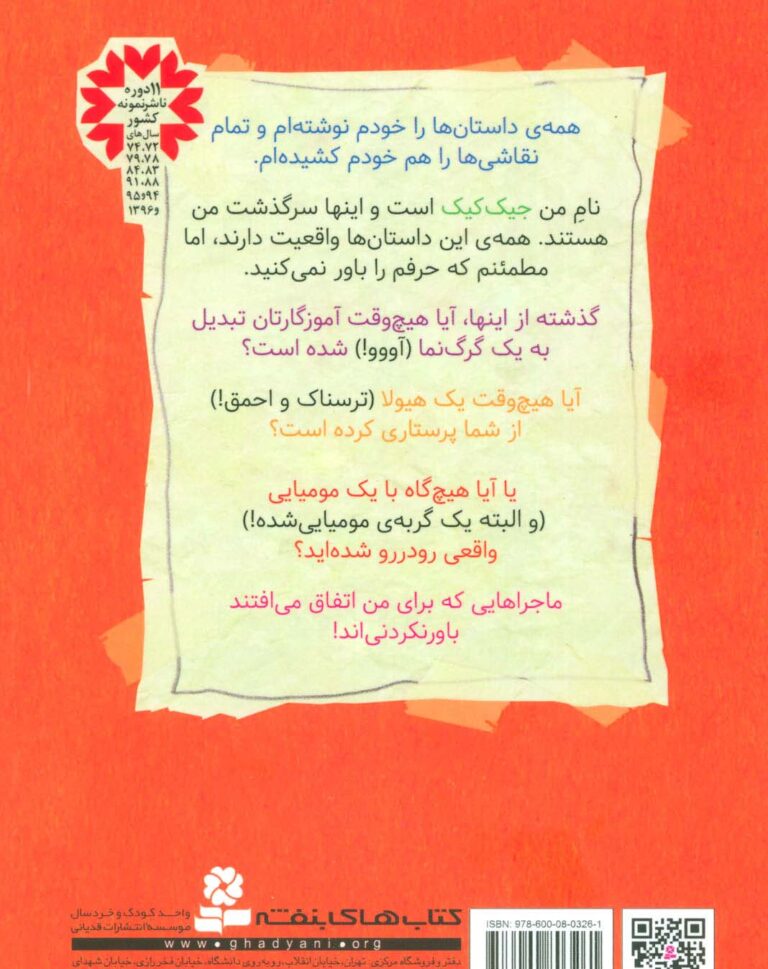 ۱۱دوره
ناشرنمونه
کشور
سال‌های
۷۴،۷۲
۷۹،۷۸
۸۴،۸۳
۹۱،۸۸
۹۴و۹۵
و۱۳۹۶
همه‌ی داستان‌ها را خودم نوشته‌ام و تمام
نقاشی‌ها را هم خودم کشیده‌ام.
نامِ من جیک‌کیک است و اینها سرگذشت من
هستند. همه‌ی این داستان‌ها واقعیت دارند، اما
مطمئنم که حرفم را باور نمی‌کنید.
گذشته از اینها، آیا هیچ‌وقت آموزگارتان تبدیل
به یک گرگ‌نما (آووو!) شده است؟
آیا هیچ‌وقت یک هیولا (ترسناک و احمق!)
از شما پرستاری کرده است؟
یا آیا هیچ‌گاه با یک مومیایی
(و البته یک گربه‌ی مومیایی‌شده!)
واقعی رودررو شده‌اید؟
ماجراهایی که برای من اتفاق می‌افتند
باورنکردنی‌اند!
کتاب‌های بنفشه
واحد کودک و خردسال
موسسه انتشارات قدیانی
www.ghadyani.org
دفتر و فروشگاه مرکزی: تهران، خیابان انقلاب، روبه‌روی دانشگاه، خیابان فخررازی، خیابان شهدای
ISBN: 978-600-08-0326-1